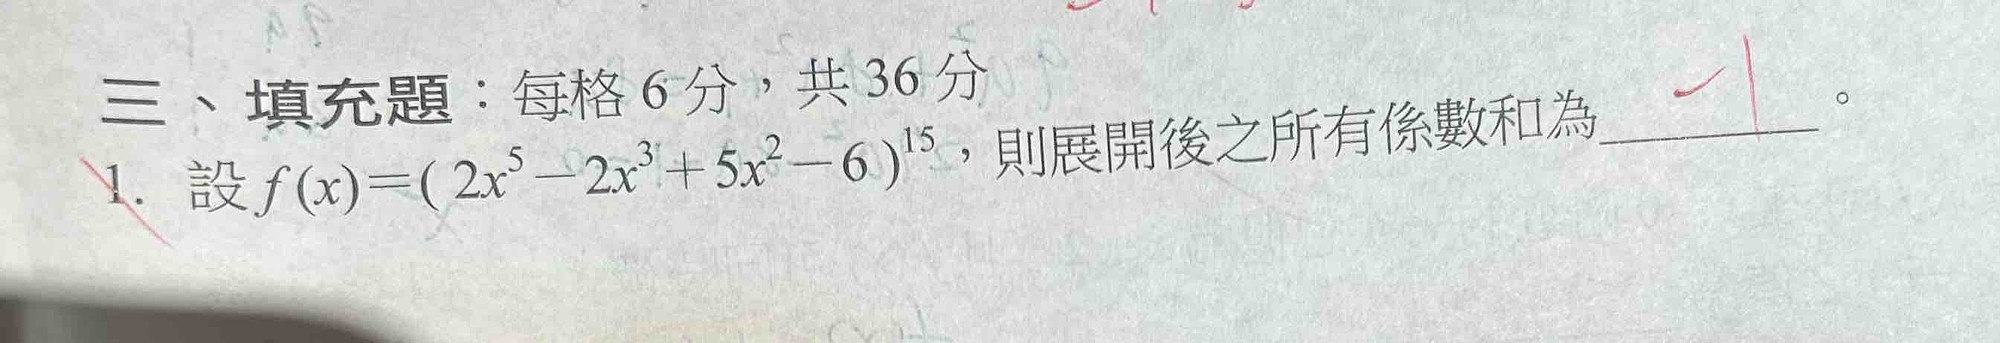 三、填充題：每格6分，共36分
1. 設f(x)=(2x⁵−2x³+5x²−6)¹⁵，則展開後之所有係數和為 −1 。